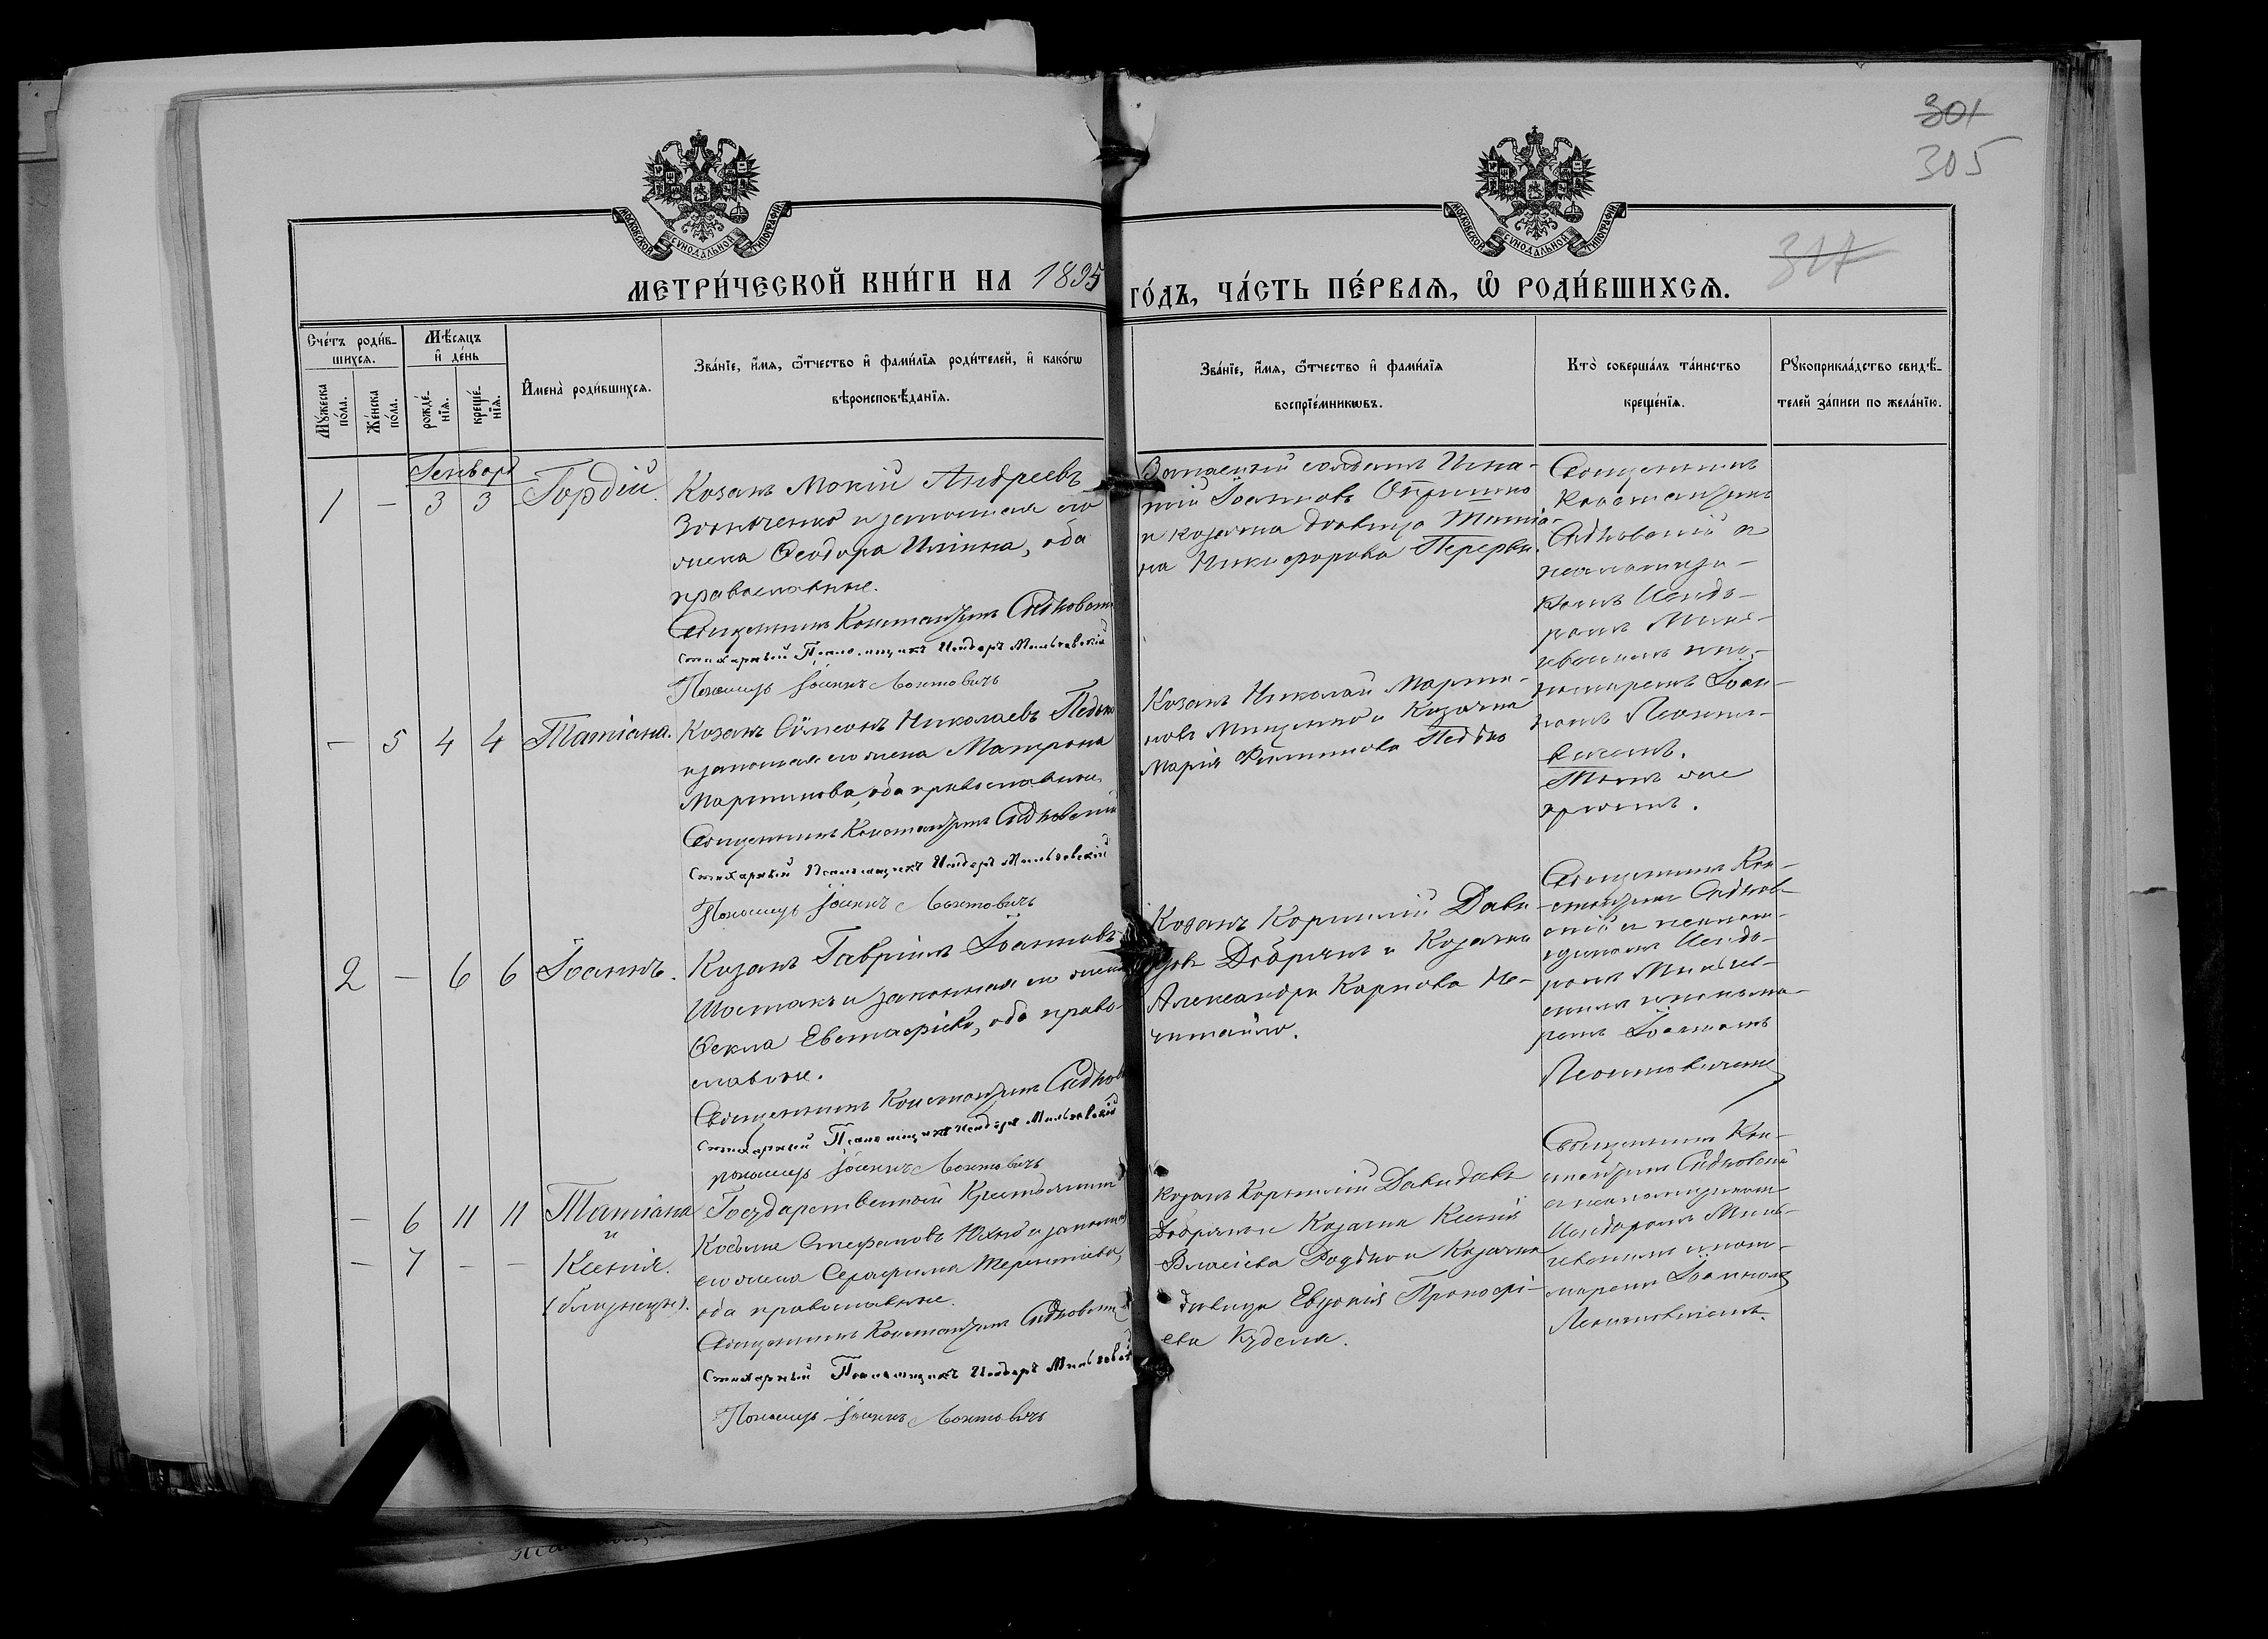 301
305
317
МОСКОВСКОЙ СѴНОДАЛЬНОЙ ТИПОГРАФІИ
МОСКОВСКОЙ СѴНОДАЛЬНОЙ ТИПОГРАФІИ
МЕТРИ́ЧЕСКОЙ КНИ́ГИ НА 1895 ГО́ДЪ, ЧА́СТЬ ПЕ́РВАѦ, Ѽ РОДИ́ВШИХСѦ.
Сче́тъ роди́в-
шихсѧ.
Мѣ́сѧцъ
и҆ де́нь
Мꙋ́жеска
по́ла.
Же́нска
по́ла.
рожде́-
нїѧ.
креще́-
нїѧ.
И҆мена̀ роди́вшихсѧ.
Зва́нїе, и҆́мѧ, ѻ҆́тчество и҆ фами́лїѧ роди́телей, и҆ како́гѡ
вѣроисповѣ́данїѧ.
Зва́нїе, и҆́мѧ, ѻ҆́тчество и҆ фами́лїѧ
воспрїе́мникѡвъ.
Кто̀ соверша́лъ та́инство
креще́нїѧ.
Рꙋкоприкла́дство свидѣ́-
телей за́писи по жела́нїю.
Генворя
1 - 3 3 Гордій.
Козакъ Мокій Андреевъ
и законная его
жена Ѳеодора Илiина, оба
православные.
Священникъ Константинъ
Стихарный Псаломщикъ Исидоръ Мильчевскій
Пономарь Іоаннъ Леонтовичъ
солдатъ Игна-
тій Іоанновъ Опришко
и козачка дѣвица Татiа-
на Никифорова
Священникъ
Константинъ
съ
псаломщи-
комъ Исидо-
ромъ Миль-
чевскимъ и по-
номаремъ Іоан-
номъ Леонто-
вичемъ.
- 5 4 4 Татіана.
Козакъ Сѵмеонъ Николаевъ
и законная его жена Матрона
Мартинова, оба православные.
Священникъ Константинъ
Стихарный Псаломщикъ Исидоръ Мильчевскій
Пономарь Іоаннъ Леонтовичъ
Козакъ Николай Марти-
новъ Мищенко и Козачка
Марія Филиппова Педько
Тѣмъ же
притомъ.
2 - 6 6 Іоаннъ.
Козакъ Гавріилъ Іоанновъ
Шостакъ и законная его жена
Ѳекла Евстафіева, оба право-
славные.
Священникъ Константинъ
Стихарный Псаломщикъ Исидоръ Мильчевскій
Пономарь Іоаннъ Леонтовичъ
Козакъ Корнилій Дави-
довъ Добрякъ и Козачка
Александра Карпова Не-
читайло.
Священникъ Кон-
стантинъ
и псалом-
щикомъ Исидо-
ромъ Мильчев-
скимъ и понома-
ремъ Іоанномъ
Леонтовичемъ
- 6 11 11 Татіана
и
- 7 - - Ксенія.
(близнецы).
Государственный Крестьянинъ
Косьма Стефановъ Юхно и законная
его жена Серафима Терентіева,
оба православные.
Священникъ Константинъ
Стихарный Псаломщикъ Исидоръ Мильчевскій
Пономарь Іоаннъ Леонтовичъ
Козакъ Корнилій Давидовъ
Добрякъ и Козачка Ксенія
Власіева Родько и Козачка
дѣвица Евдокія Прокофі-
ева Кудела.
Священникъ Кон-
стантинъ
съ псаломщикомъ
Исидоромъ Миль-
чевскимъ и поно-
маремъ Іоанномъ
Леонтовичемъ.